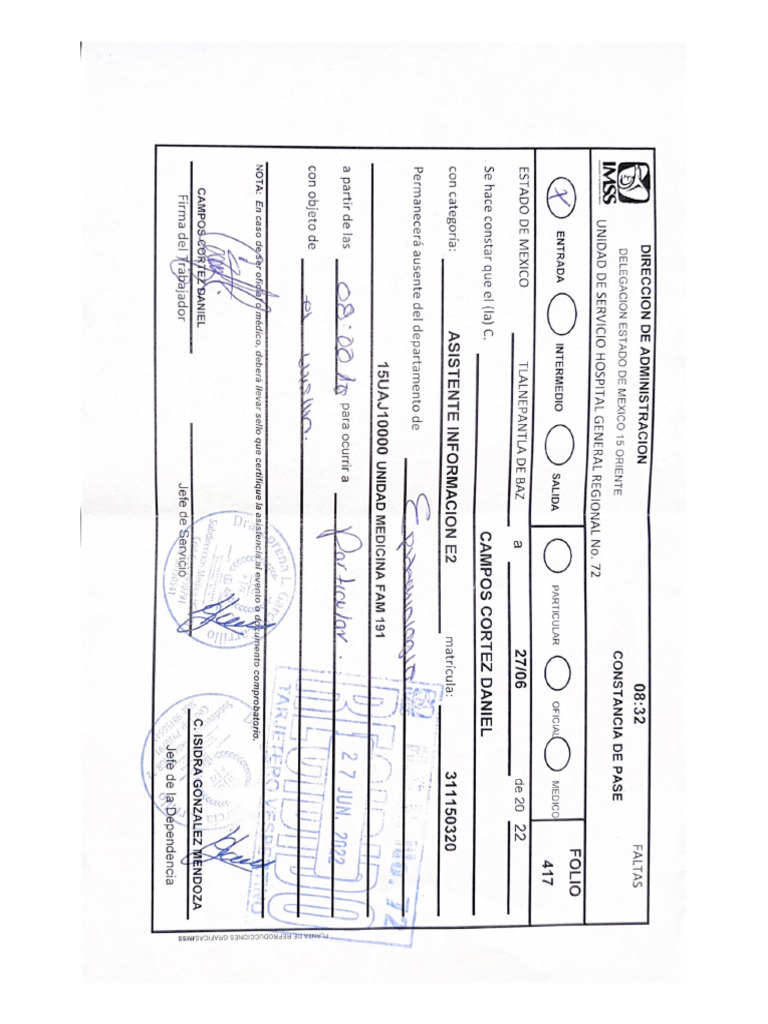 IMSS
DIRECCION DE ADMINISTRACION 08:32
DELEGACION ESTADO DE MEXICO 15 ORIENTE CONSTANCIA DE PASE FALTAS
UNIDAD DE SERVICIO HOSPITAL GENERAL REGIONAL No. 72
X ENTRADA INTERMEDIO SALIDA PARTICULAR OFICIAL MEDICO FOLIO
417
ESTADO DE MEXICO TLALNEPANTLA DE BAZ a 27/06 de 20 22
Se hace constar que el (la) C. CAMPOS CORTEZ DANIEL
con categoría: ASISTENTE INFORMACION E2 matrícula: 311150320
Permanecerá ausente del departamento de Epidemiologia
15UAJ10000 UNIDAD MEDICINA FAM 191
a partir de las 08:00 para ocurrir a Particular.
con objeto de el mismo.
RECIBIDO
27 JUN. 2022
TARJETERO VESPERTINO
NO. 72
NOTA: En caso de ser oficial o médico, deberá llevar sello que certifique la asistencia al evento o documento comprobatorio.
CAMPOS CORTEZ DANIEL C. ISIDRA GONZALEZ MENDOZA
Firma del Trabajador Jefe de Servicio Jefe de la Dependencia
PLANTA DE REPRODUCCIONES GRAFICAS IMSS